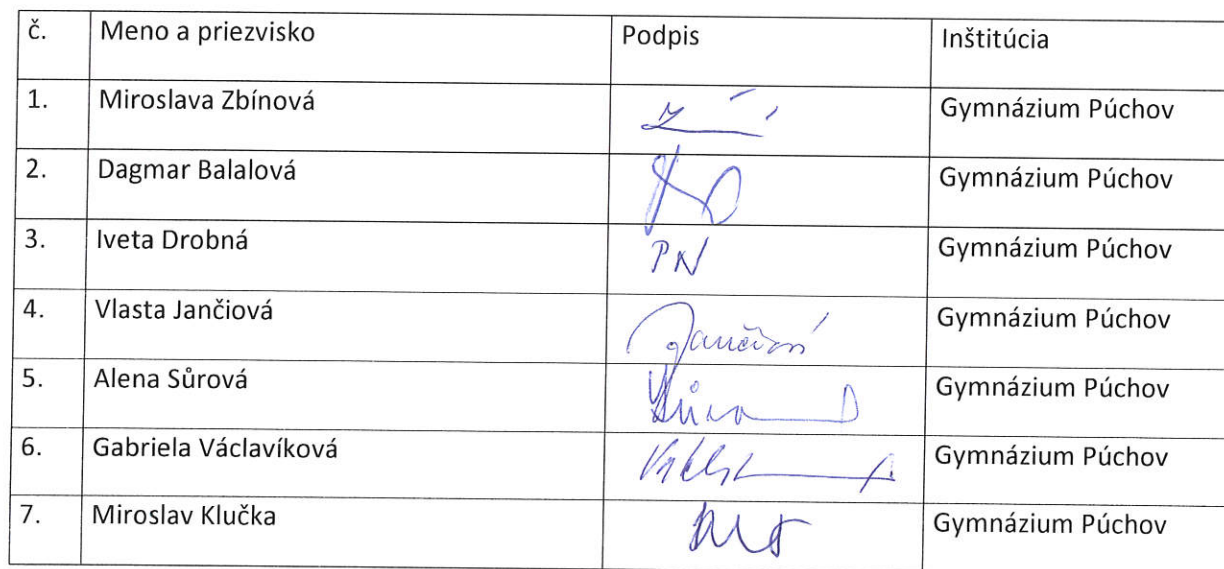 č. Meno a priezvisko Podpis Inštitúcia
1. Miroslava Zbínová Gymnázium Púchov
2. Dagmar Balalová Gymnázium Púchov
3. Iveta Drobná PN Gymnázium Púchov
4. Vlasta Jančiová Jančiová Gymnázium Púchov
5. Alena Sůrová Gymnázium Púchov
6. Gabriela Václavíková Gymnázium Púchov
7. Miroslav Klučka Gymnázium Púchov